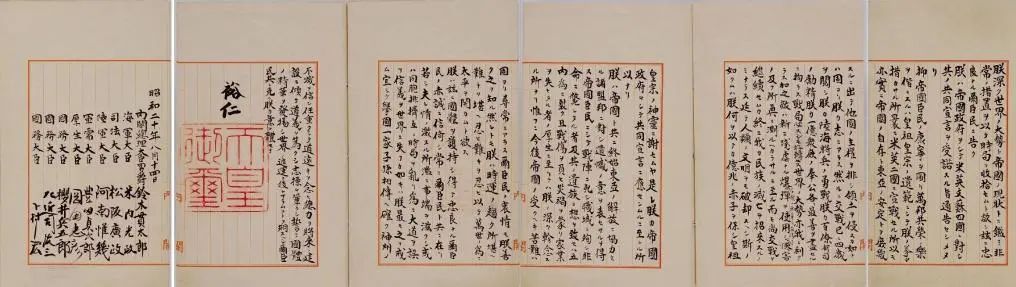 朕深ク世界ノ大勢ト帝國ノ現狀トニ鑑ミ非
常ノ措置ヲ以テ時局ヲ收拾セムト欲シ茲ニ忠
良ナル爾臣民ニ告ク
朕ハ帝國政府ヲシテ米英支蘇四國ニ對シ
其ノ共同宣言ヲ受諾スル旨通告セシメタ
リ
抑〻帝國臣民ノ康寧ヲ圖リ萬邦共榮ノ樂
ヲ偕ニスルハ皇祖皇宗ノ遺範ニシテ朕ノ拳々
措カサル所曩ニ米英二國ニ宣戰セル所以モ
亦實ニ帝國ノ自存ト東亞ノ安定トヲ庶幾
スルニ出テ他國ノ主權ヲ排シ領土ヲ侵スカ如キ
ハ固ヨリ朕カ志ニアラス然ルニ交戰已ニ四歳
ヲ閲シ朕カ陸海將兵ノ勇戰朕カ百僚有司
ノ勵精朕カ一億衆庶ノ奉公各〻最善ヲ盡セルニ
拘ラス戰局必スシモ好轉セス世界ノ大勢亦我ニ利アラス
加之敵ハ新ニ殘虐ナル爆彈ヲ使用シテ頻ニ無辜ヲ殺傷シ慘害
ノ及フ所眞ニ測ルヘカラサルニ至ル而モ尚交戰ヲ
繼續セムカ終ニ我カ民族ノ滅亡ヲ招來スルノ
ミナラス延テ人類ノ文明ヲモ破却スヘシ斯ノ
如クムハ朕何ヲ以テカ億兆ノ赤子ヲ保シ皇祖
皇宗ノ神靈ニ謝セムヤ是レ朕カ帝國
政府ヲシテ共同宣言ニ應セシムルニ至レル所
以ナリ
朕ハ帝國ト共ニ終始東亞ノ解放ニ協力セ
ル諸盟邦ニ對シ遺憾ノ意ヲ表セサルヲ得
ス帝國臣民ニシテ戰陣ニ死シ職域ニ殉シ非
命ニ斃レタル者及其ノ遺族ニ想ヲ致セハ五
内爲ニ裂ク且戰傷ヲ負ヒ災禍ヲ蒙リ家業
ヲ失ヒタル者ノ厚生ニ至リテハ朕ノ深ク軫念ス
ル所ナリ惟フニ今後帝國ノ受クヘキ苦難ハ
固ヨリ尋常ニアラス爾臣民ノ衷情モ朕善
ク之ヲ知ル然レトモ朕ハ時運ノ趨ク所堪ヘ
難キヲ堪ヘ忍ヒ難キヲ忍ヒ以テ萬世ノ爲ニ
太平ヲ開カムト欲ス
朕ハ茲ニ國體ヲ護持シ得テ忠良ナル爾臣
民ノ赤誠ニ信倚シ常ニ爾臣民ト共ニ在リ
若シ夫レ情ノ激スル所濫ニ事端ヲ滋クシ或
ハ同胞排擠互ニ時局ヲ亂リ爲ニ大道ヲ誤リ
信義ヲ世界ニ失フカ如キハ朕最モ之ヲ戒
ム宜シク擧國一家子孫相傳ヘ確ク神州ノ
不滅ヲ信シ任重クシテ道遠キヲ念ヒ總力ヲ將來ノ建
設ニ傾ケ道義ヲ篤クシ志操ヲ鞏クシ誓テ國體
ノ精華ヲ發揚シ世界ノ進運ニ後レサラムコトヲ期スヘシ爾臣
民其レ克ク朕カ意ヲ體セヨ
裕仁
天皇御璽
昭和二十年八月十四日
内閣總理大臣男爵鈴木貫太郎
海軍大臣 米内光政
司法大臣 松阪廣政
陸軍大臣 阿南惟幾
軍需大臣 豊田貞次郎
厚生大臣 岡田忠彦
國務大臣 櫻井兵五郎
國務大臣
國務大臣 下村宏